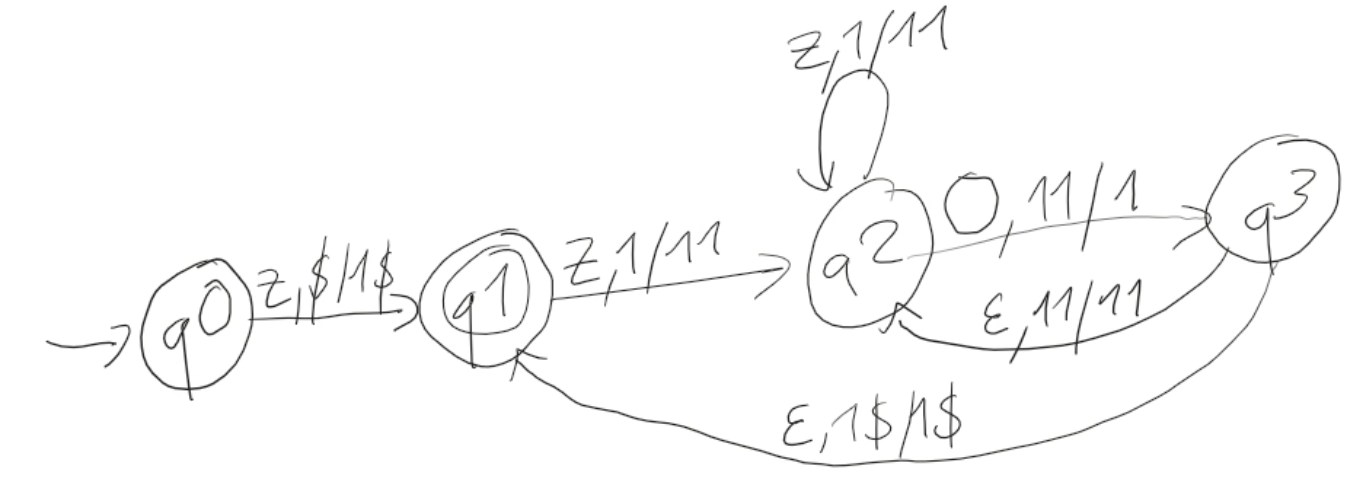 z,1/11
q0
z,$/1$
q1
z,1/11
q2
O,11/1
q3
ε,11/11
ε,1$/1$